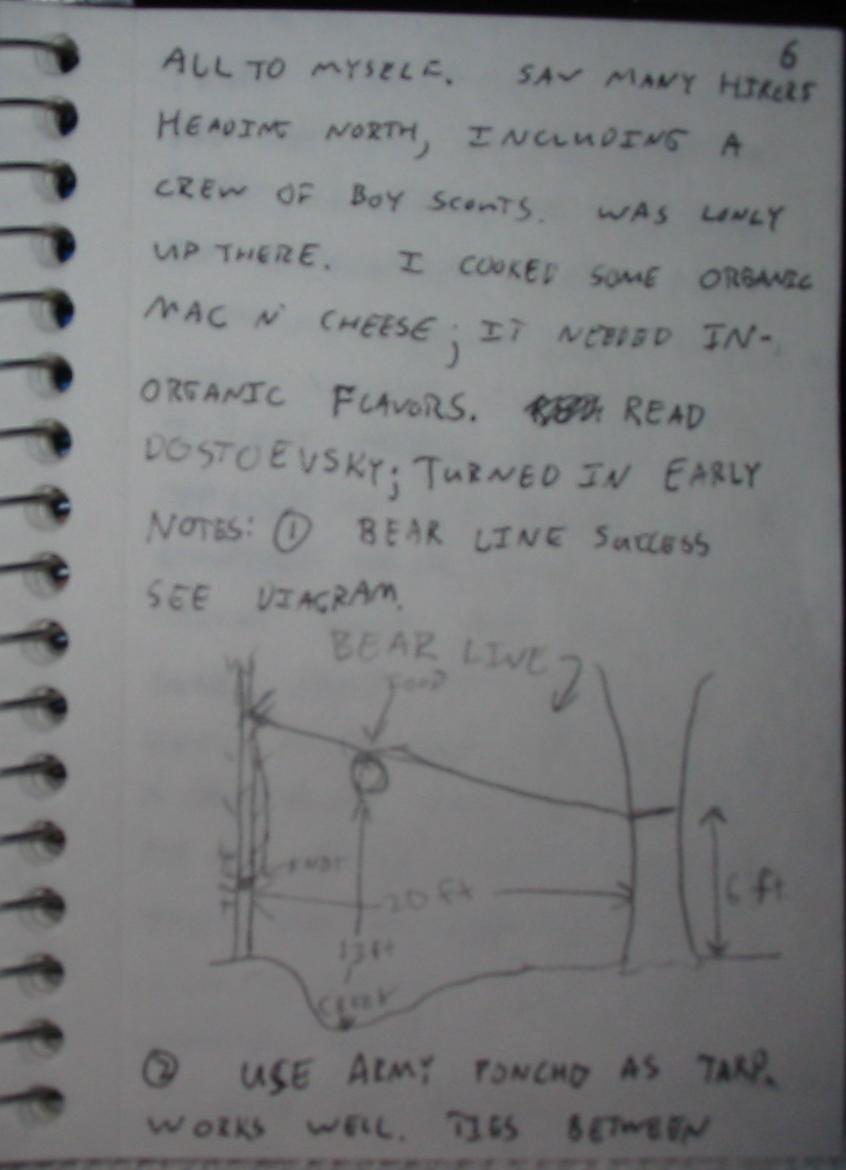 6
ALL TO MYSELF. SAW MANY HIKERS
HEADING NORTH, INCLUDING A
CREW OF BOY SCOUTS. WAS LONLY
UP THERE. I COOKED SOME ORGANIC
MAC N' CHEESE; IT NEEDED IN-
ORGANIC FLAVORS. READ
DOSTOEVSKY; TURNED IN EARLY
NOTES: ① BEAR LINE SUCCESS
SEE DIAGRAM.
BEAR LINE
FOOD
KNOT
TREE
20 ft
6 ft
13 ft
CREEK
② USE ARMY PONCHO AS TARP.
WORKS WELL. TIES BETWEEN